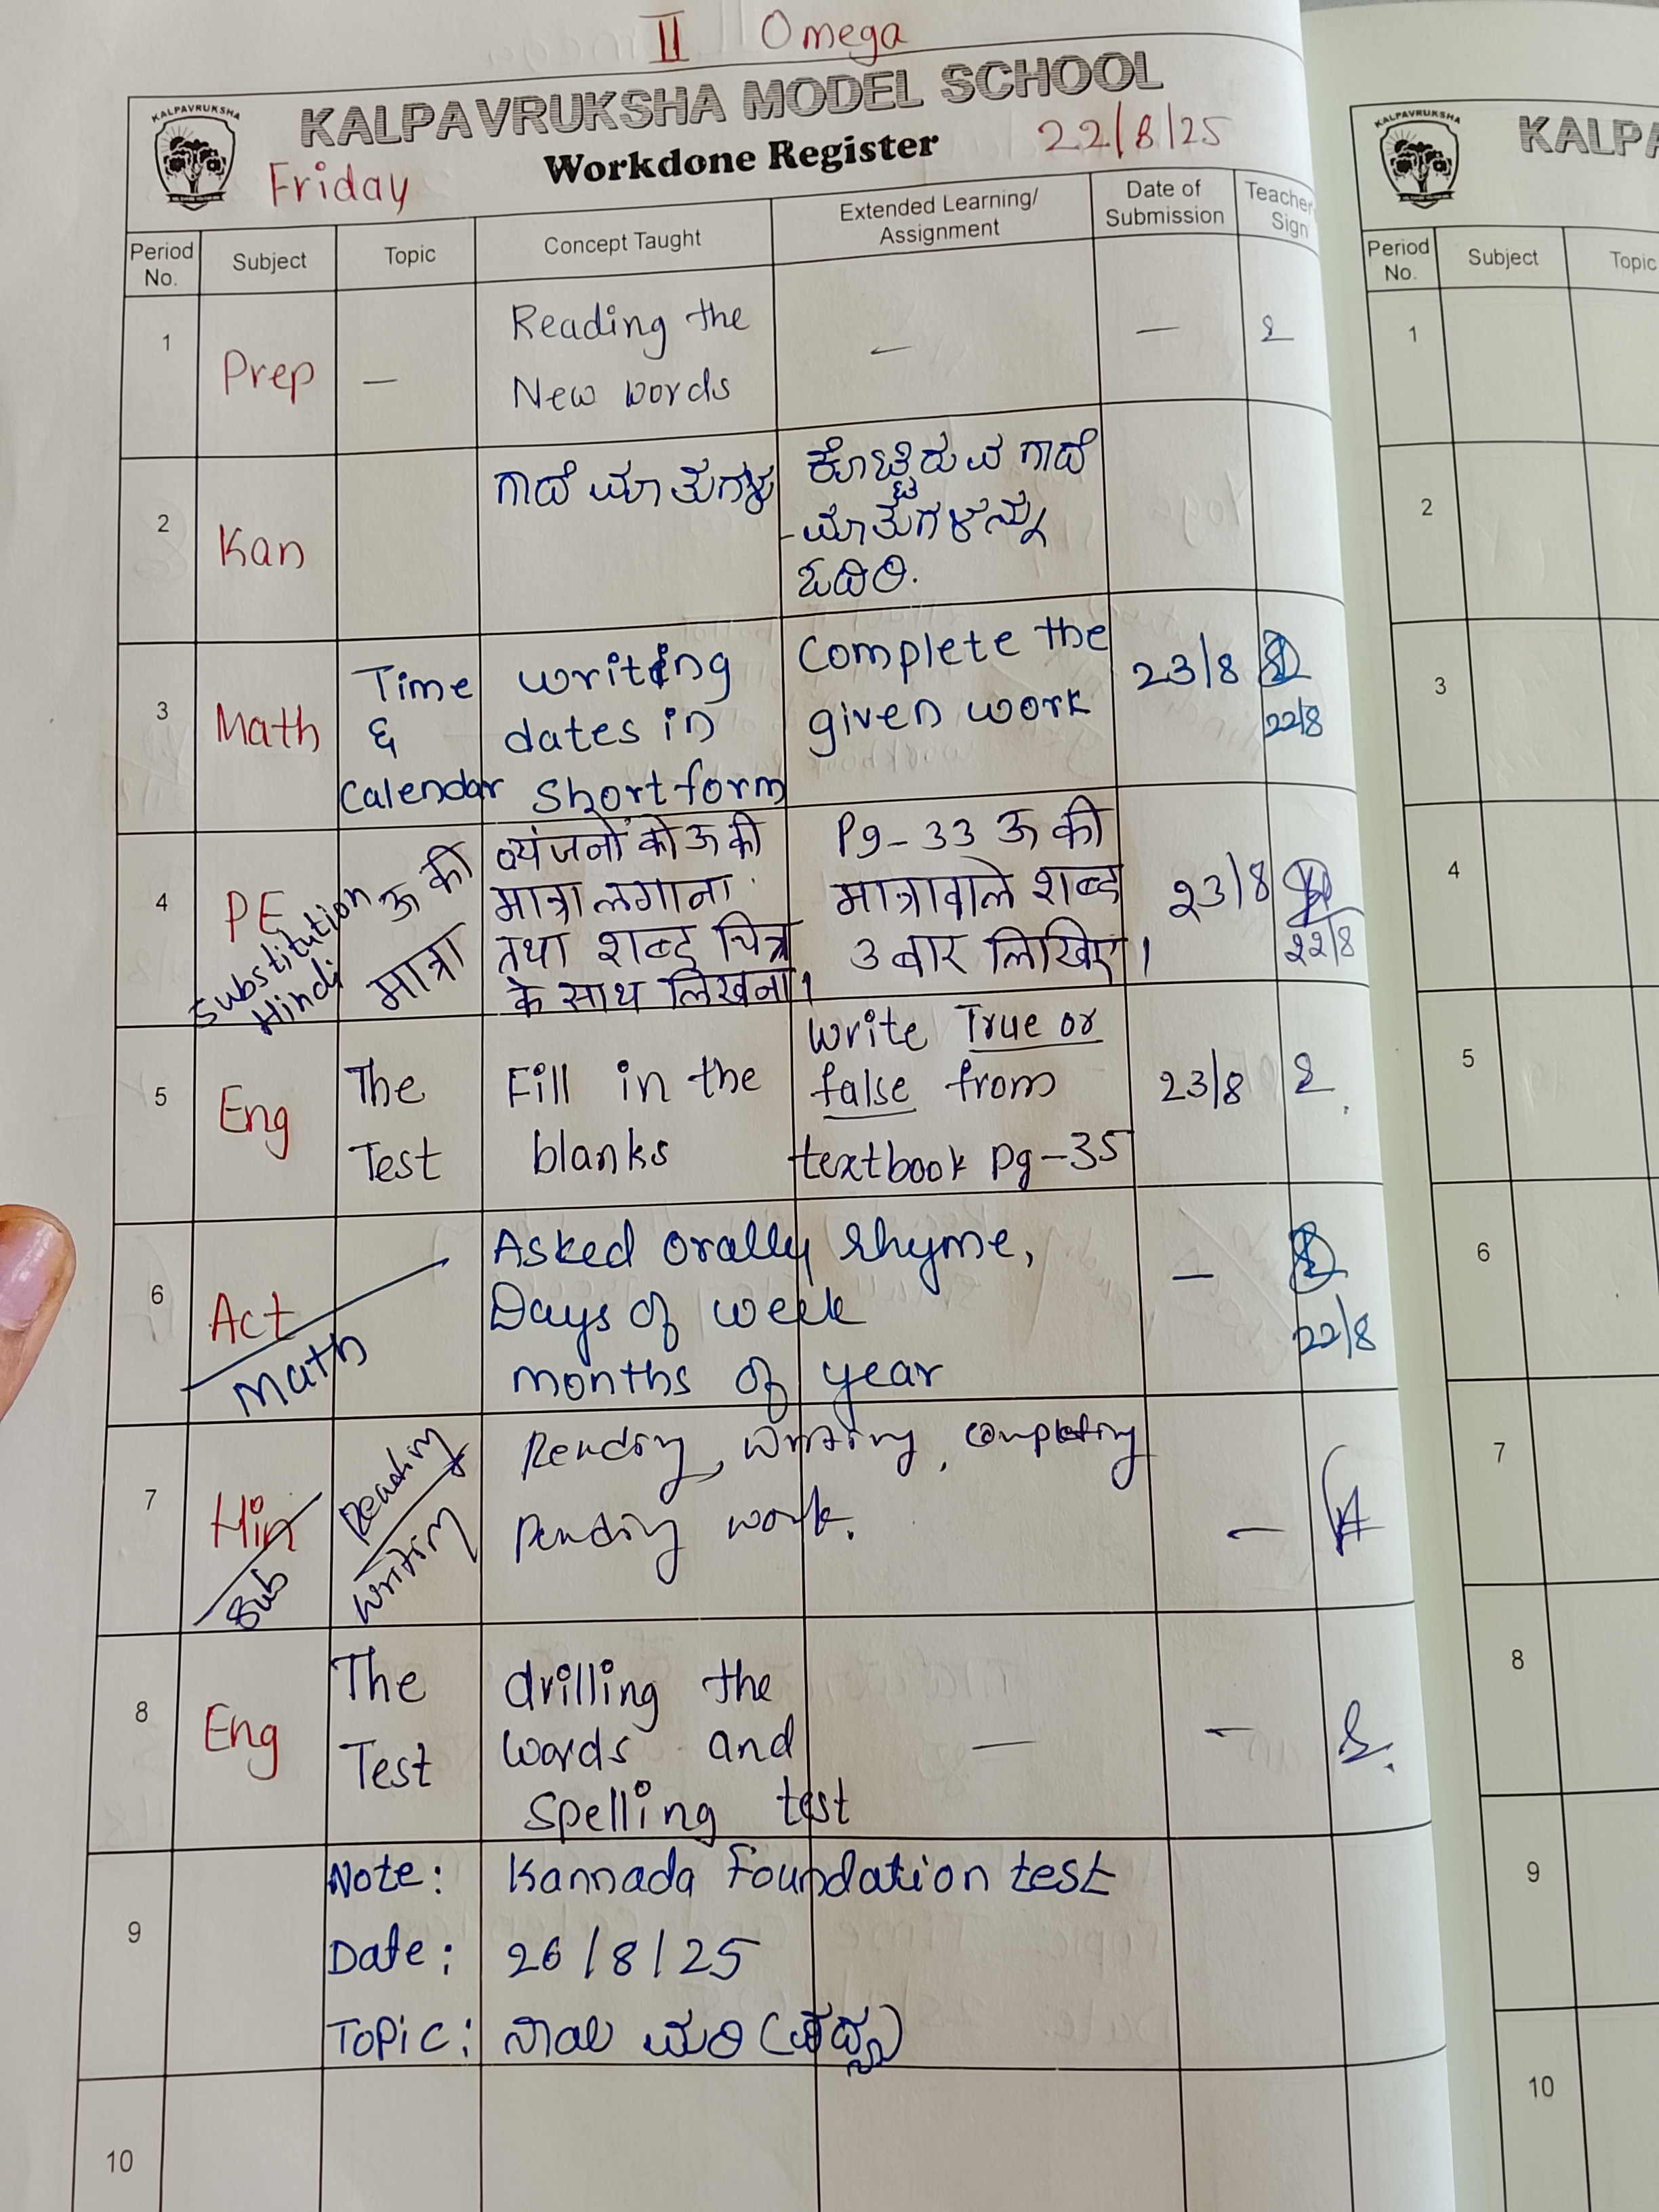 II Omega
KALPAVRUKSHA
KALPAVRUKSHA MODEL SCHOOL
Friday Workdone Register 22/8/25
Period No. Subject Topic Concept Taught Extended Learning/ Assignment Date of Submission Teacher Sign
1 Prep — Reading the — —
New words
2 Kan ಗಾದೆ ಮಾತುಗಳು ಕೊಟ್ಟಿರುವ ಗಾದೆ
ಮಾತುಗಳನ್ನು
ಓದಿರಿ.
3 Math Time writing Complete the 23/8
& dates in given work 22/8
Calendar Short form
4 PE ऊ की व्यंजनों को ऊ की Pg-33 ऊ की 23/8
Substitution मात्रा मात्रा लगाना मात्रावाले शब्द 22/8
Hindi तथा शब्द चित्र 3 बार लिखिए।
के साथ लिखना।
5 Eng The Fill in the Write True or 23/8
Test blanks false from
textbook Pg-35
6 Act Asked orally rhyme, —
Math Days of week 22/8
months of year
7 Hin Reading Reading, writing, completing —
Sub Writing Pending work.
8 Eng The drilling the — —
Test words and
Spelling test
9 Note: Kannada Foundation test
Date: 26/8/25
Topic: ನಾಯಿ ಮರಿ (ಪದ್ಯ)
10
KALPAVRUKSHA
KALPA
Period No. Subject Topic
1
2
3
4
5
6
7
8
9
10